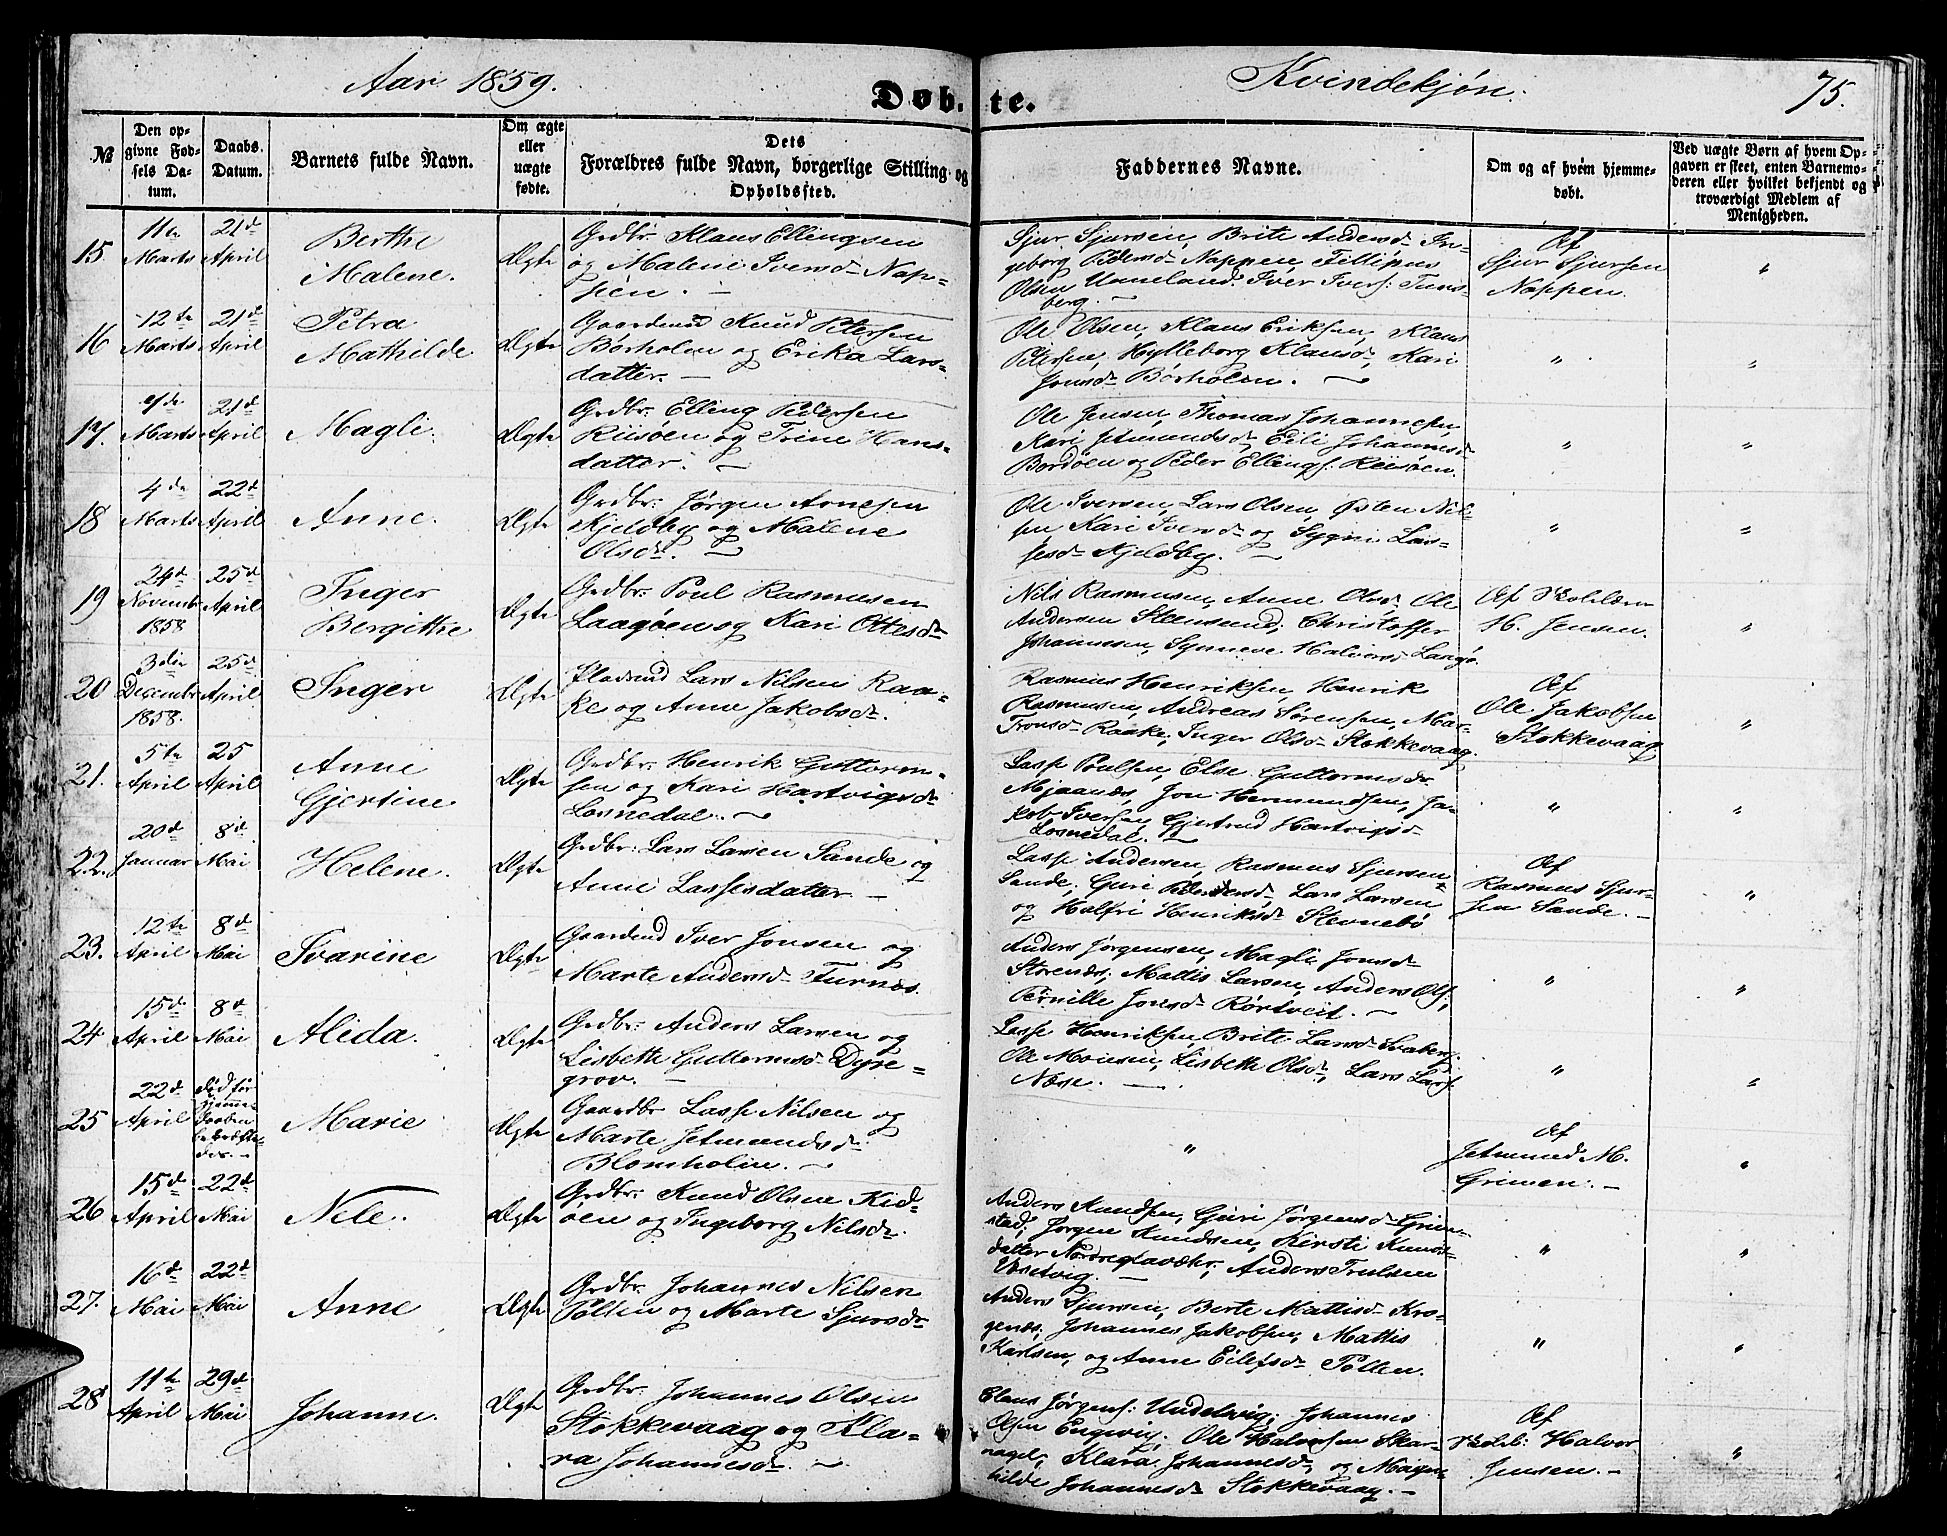 Aar 1859.
Døbte.
Kvindekjøn.
75.
№
Den opgivne Fødsels Datum.
Daabs. Datum.
Barnets fulde Navn.
Om ægte eller uægte fødte.
Dets Forældres fulde Navn, borgerlige Stilling og Opholdssted.
Faddernes Navne.
Om og af hvem hjemmedøbt.
Ved uægte Børn af hvem Opgaven er skeet, enten Barnemoderen eller hvilket bekjendt og troværdigt Medlem af Menigheden.
15 11te Marts 21de April
Berthe Malene.
Ægte
Grdbr. Klaus Ellingsen
og Malene Iversd. Nap-
pen. —
Sjur Sjursen, Brite Andersd. In-
geborg Pedersd. Nappen, Fillipus
Olsen Uneland. Iver Ivers. Tuns-
berg. —
Af
Sjur Sjursen
Nappen.
"
16 12te Marts 21de April
Petra Mathilde
Ægte
Gaardmd Knud Petersen
Børholm og Erika Lars-
datter. —
Ole Olsen, Klaus Eriksen, Klaus
Petersen, Hylleborg Klausd. Kari
Jonsd. Børholm. —
"
"
17. Marts 21de April
Magli.
Ægte
Grdbr. Elling Pedersen
Riisøen og Trine Hans-
datter. —
Ole Jensen, Thomas Johannesen
Kari Jetmundsd. Eili Johannesd.
Bordøen og Peder Ellings. Riisøen.
"
"
18 4de Marts 22de April
Anne.
Ægte
Grdbr. Jørgen Arnesen
Kjeldby og Malene
Olsd. —
Ole Iversen, Lars Olsen, Østen Nil-
sen Kari Iversd. og Sygni Las-
sesd. Kjeldby. —
"
"
19 24de Novembr 1858 25de April
Inger Bergithe
Ægte
Grdbr. Poul Rasmusen
Laagøen og Kari Ottesd.
Nils Rasmusen, Anne Olsd. Ole
Andersen Steensund, Christoffer
Johannesen, Synneve Halvorsd. Laagø.
Af Skolelærer
H. Jensen.
"
20 3die Decembr 1858. 25de April
Inger
Ægte
Pladsmd Lars Nilsen Raa-
ke og Anne Jakobsd.
Rasmus Henriksen, Henrik
Rasmusen, Andreas Sørensen, Mar-
Tronsd. Raake, Inger Olsd. Stokkevaag.
Af
Ole Jakobsen
Stokkevaag
"
21. 5te April 25 April
Anne Gjertine
Ægte
Grdbr. Henrik Guttorm-
sen og Kari Hartvigsd.
Losnedal. —
Lasse Poulsen, Else Guttormsd.
Mjaanes, Jon Hermundsen, Ja-
kob Iversen, Gjertrud Hartvigsd.
Losnedal. —
"
"
22. 20de Januar 8de Mai
Helene.
Ægte
Grdbr. Lars Larsen Sande og
Anne Lassesdatter. —
Lasse Andersen, Rasmus Sjursen
Sande, Guri Pedersd. Lars Larsen
og Halfri Henriksd. Stevnebø
Af
Rasmus Sjur-
sen Sande. —
"
23. 12te April 8de Mai
Ivarine
Ægte
Gaardmd Iver Jonsen og
Marte Andersd. Furnæs.
Anders Jørgensen, Magli Jonsd.
Storenæs, Mattis Larsen, Anders Ols.
Pernille Jonsd. Rørtveit. —
"
"
24. 15de April 8de Mai
Alida.
Ægte
Grdbr. Anders Larsen og
Lisbeth Guttormsd. Dyre-
grov. —
Lasse Henriksen, Brite Larsd. Svaberg.
Ole Monsen, Lisbeth Olsd. Lars Lars.
Næse. —
"
"
25 22de April
død før Hjemme-
daaben
bekræfte-
des. —
Marie
Ægte
Gaardbr. Lasse Nilsen og
Marte Jetmundsd.
Blomholm. —
"
Af
Jetmund M.
Grimen. —
"
26 15de April 22de Mai
Nele.
Ægte
Grdbr. Knud Olsen Kid-
øen og Ingeborg Nilsd.
Anders Knudsen, Guri Jørgensd. Grim-
stad, Jørgen Knudsen, Kirsti Knuds-
datter Nordregjavæhr, Anders Trulsen
—
"
"
27. 16de Mai 22de Mai
Anne
Ægte
Grdbr. Johannes Nilsen
Pollen og Marte Sjursd.
Anders Sjursen, Berte Mattisd. Kro-
genæs, Johannes Jakobsen, Mattis
Karlsen, og Anne Eilefsd. Pollen.
"
"
28 11te April 29de Mai
Johanne.
Ægte
Grdbr. Johannes Olsen
Stokkevaag og Kla-
ra Johannesd. —
Claus Jørgens. Undelvig, Johannes
Olsen Engevig, Ole Halvorsen Skar-
vagel, Klara Johannesd. og Magn-
hilde Johannesd. Stokkevaag. —
Af
Skolel. Halvor
Jensen. —
"